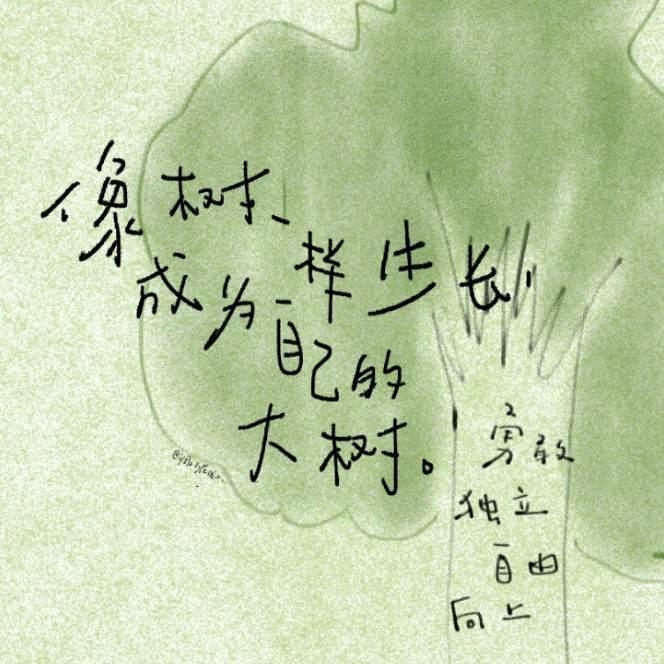 像树一样生长，
成为自己的
大树。
勇敢
独立
自由
向上